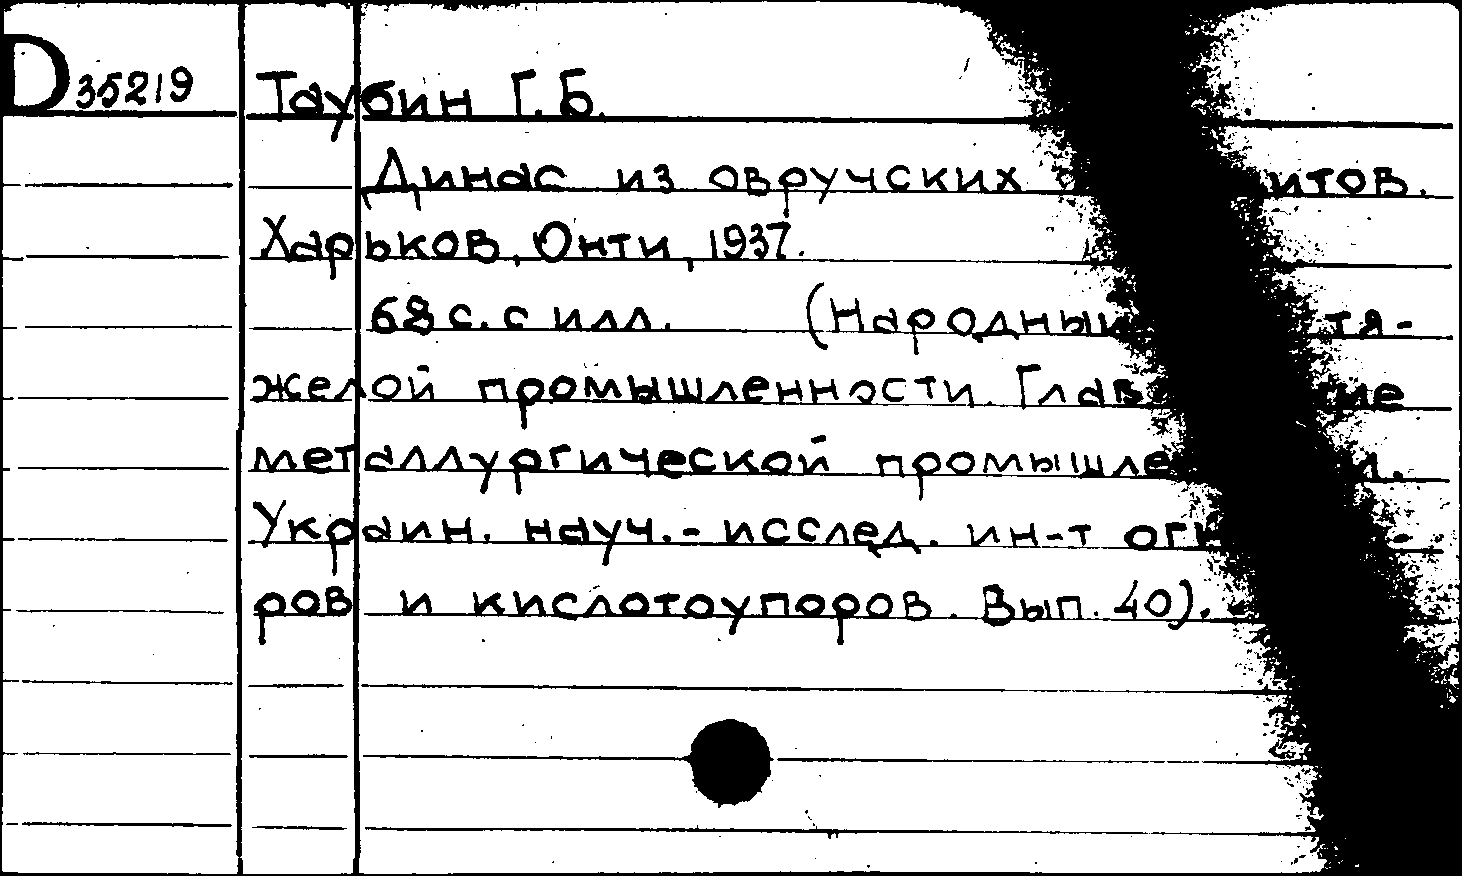 D 35219
Таубин Г. Б.
Динас из овручских
Харьков, Онти, 1937.
68 с. с илл. (Народный тя-
желой промышленности.
металлургической
Украин. науч.-исслед. ин-т
ров и кислотоупоров. Вып. 40).